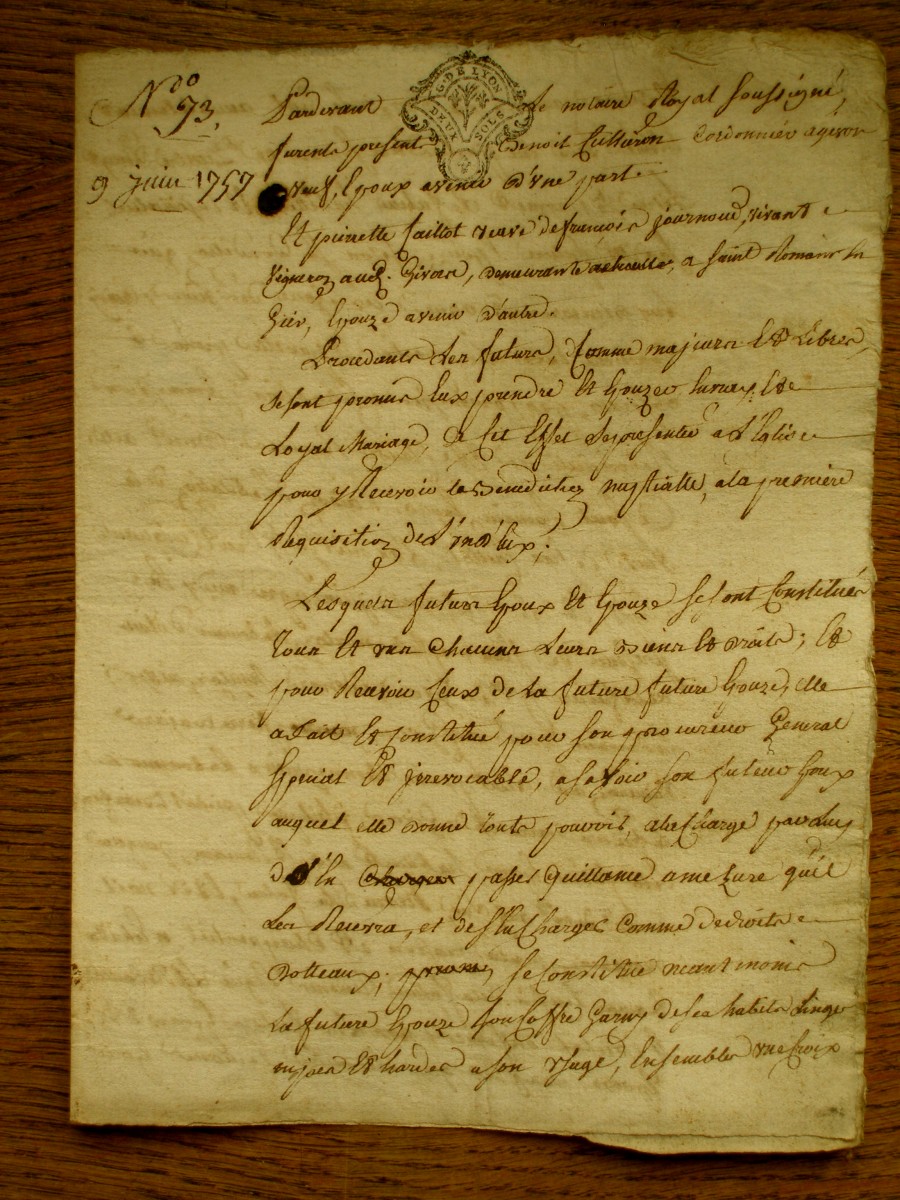 Ndo
73.
9 juin 1757
G. DE LYON
DEUX SOLS
Pardevant Le notaire Royal soussigné,
furent present Benoit Cordonnier a givor
veuf, Epoux avenir d'vne part
Et pierrette Caillot veuve de francois journoud, vivant
vigneron aud. Givors, demeurante a saint Romain En
Gier, Epouze avenir d'autre.
Procedants Les futurs, Comme majeurs Et Libres,
se sont promis Eux prendre Et Epouzer En vray Et
Loyal Mariage, a Cet Effet se presenter a L'Eglise
pour y Recevoir la Benediction nuptialle, a la premiere
Requisition de L'un d'Eux;
Lesquels futurs Epoux Et Epouze se sont Constitués
tous Et vn Chacuns Leurs Biens Et Droits; Et
pour Recevoir Ceux de La future future Epouze, elle
a fait Et Constitué pour son procureur General
special Et jrrevocable, a sçavoir son futeur Epoux
auquel elle Donne touts pouvoirs, a la Charge par Luy
d'En passer Quittance a mezure qu'il
Les Recevra, et des Charges Comme de droits
Dottaux; se Constitue neantmoins
La future Epouze son Coffre Garny de ses habits Linge
nipes Et hardes a son vsage, Ensembles vne Croix